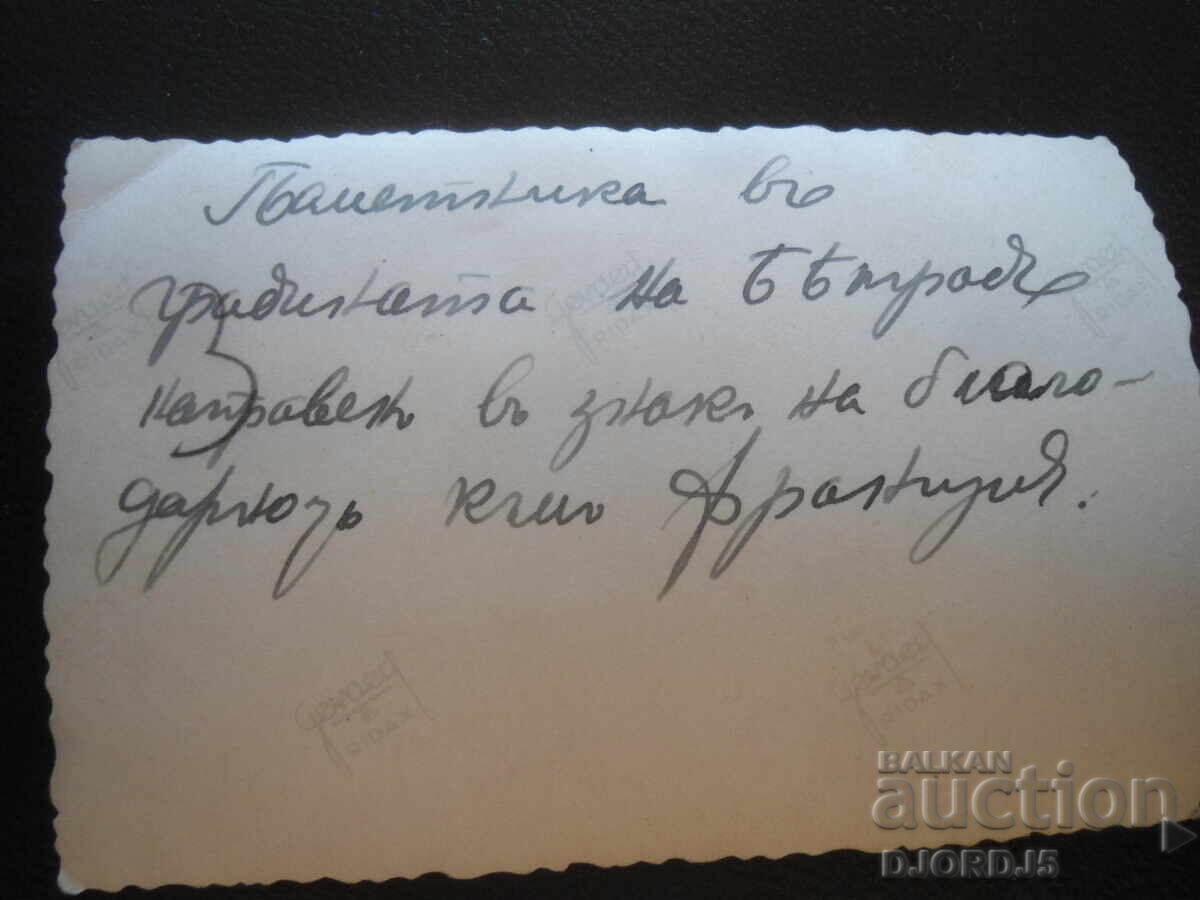 Паметника въ
градината на Бѣлградъ
направенъ въ знакъ на благо-
дарность къмъ Франция.
Gevaert
RIDAX
Gevaert
RIDAX
Gevaert
RIDAX
Gevaert
RIDAX
BALKAN
auction
DJORDJ5